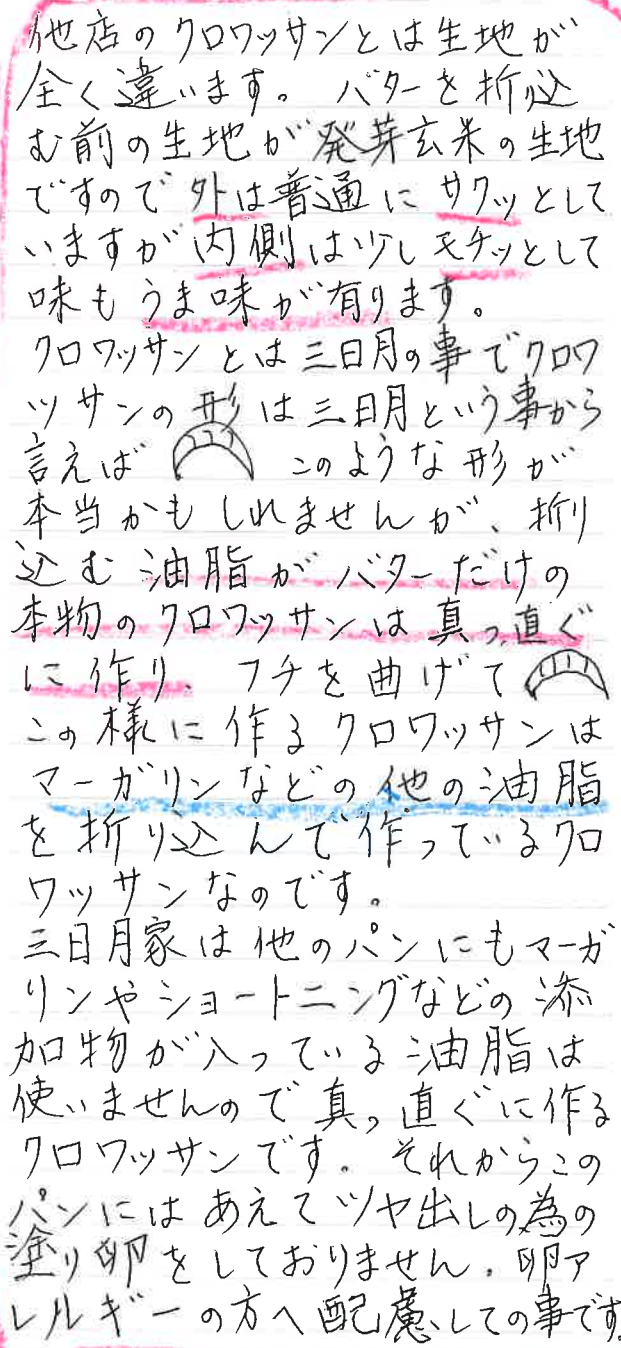 他店のクロワッサンとは生地が
全く違います。バターを折り込
む前の生地が発芽玄米の生地
ですので外は普通にサクッとして
いますが内側は少しモチッとして
味もうま味が有ります。
クロワッサンとは三日月の事でクロワ
ッサンの形は三日月という事から
言えば このような形が
本当かもしれませんが、折り
込む油脂がバターだけの
本物のクロワッサンは真っ直ぐ
に作り、フチを曲げて
この様に作るクロワッサンは
マーガリンなどの他の油脂
を折り込んで作っているクロ
ワッサンなのです。
三日月家は他のパンにもマーガ
リンやショートニングなどの添
加物が入っている油脂は
使いませんので真っ直ぐに作る
クロワッサンです。それからこの
パンにはあえてツヤ出しの為の
塗り卵をしておりません。卵ア
レルギーの方へ配慮しての事です